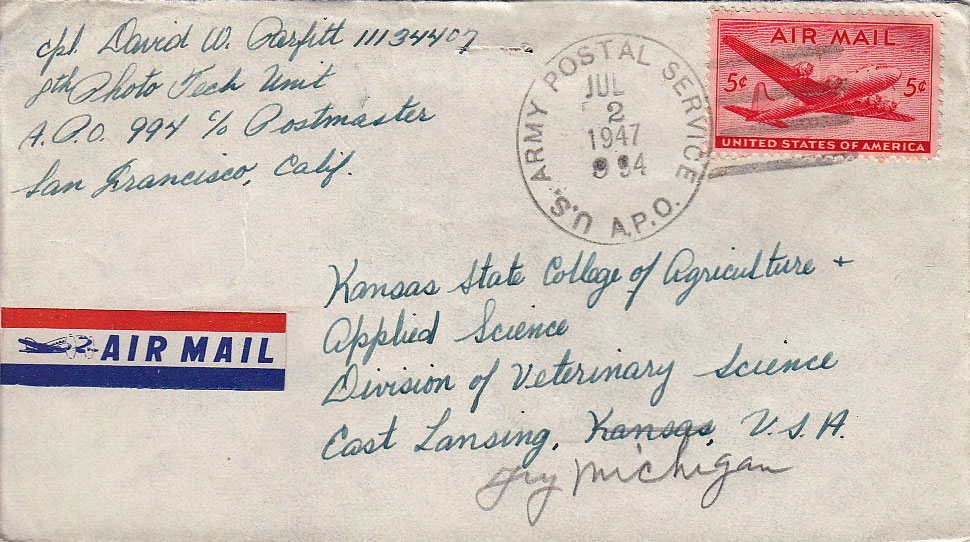 cpl. David W. Parfitt 11134407
8th Photo Tech Unit
A.P.O. 994 c/o Postmaster
San Francisco, Calif.
U.S. ARMY POSTAL SERVICE
JUL
2
1947
994
A.P.O.
AIR MAIL
5¢ 5¢
UNITED STATES OF AMERICA
AIR MAIL
Kansas State College of Agriculture +
Applied Science
Division of Veterinary Science
East Lansing, Kansas, U.S.A.
Try Michigan